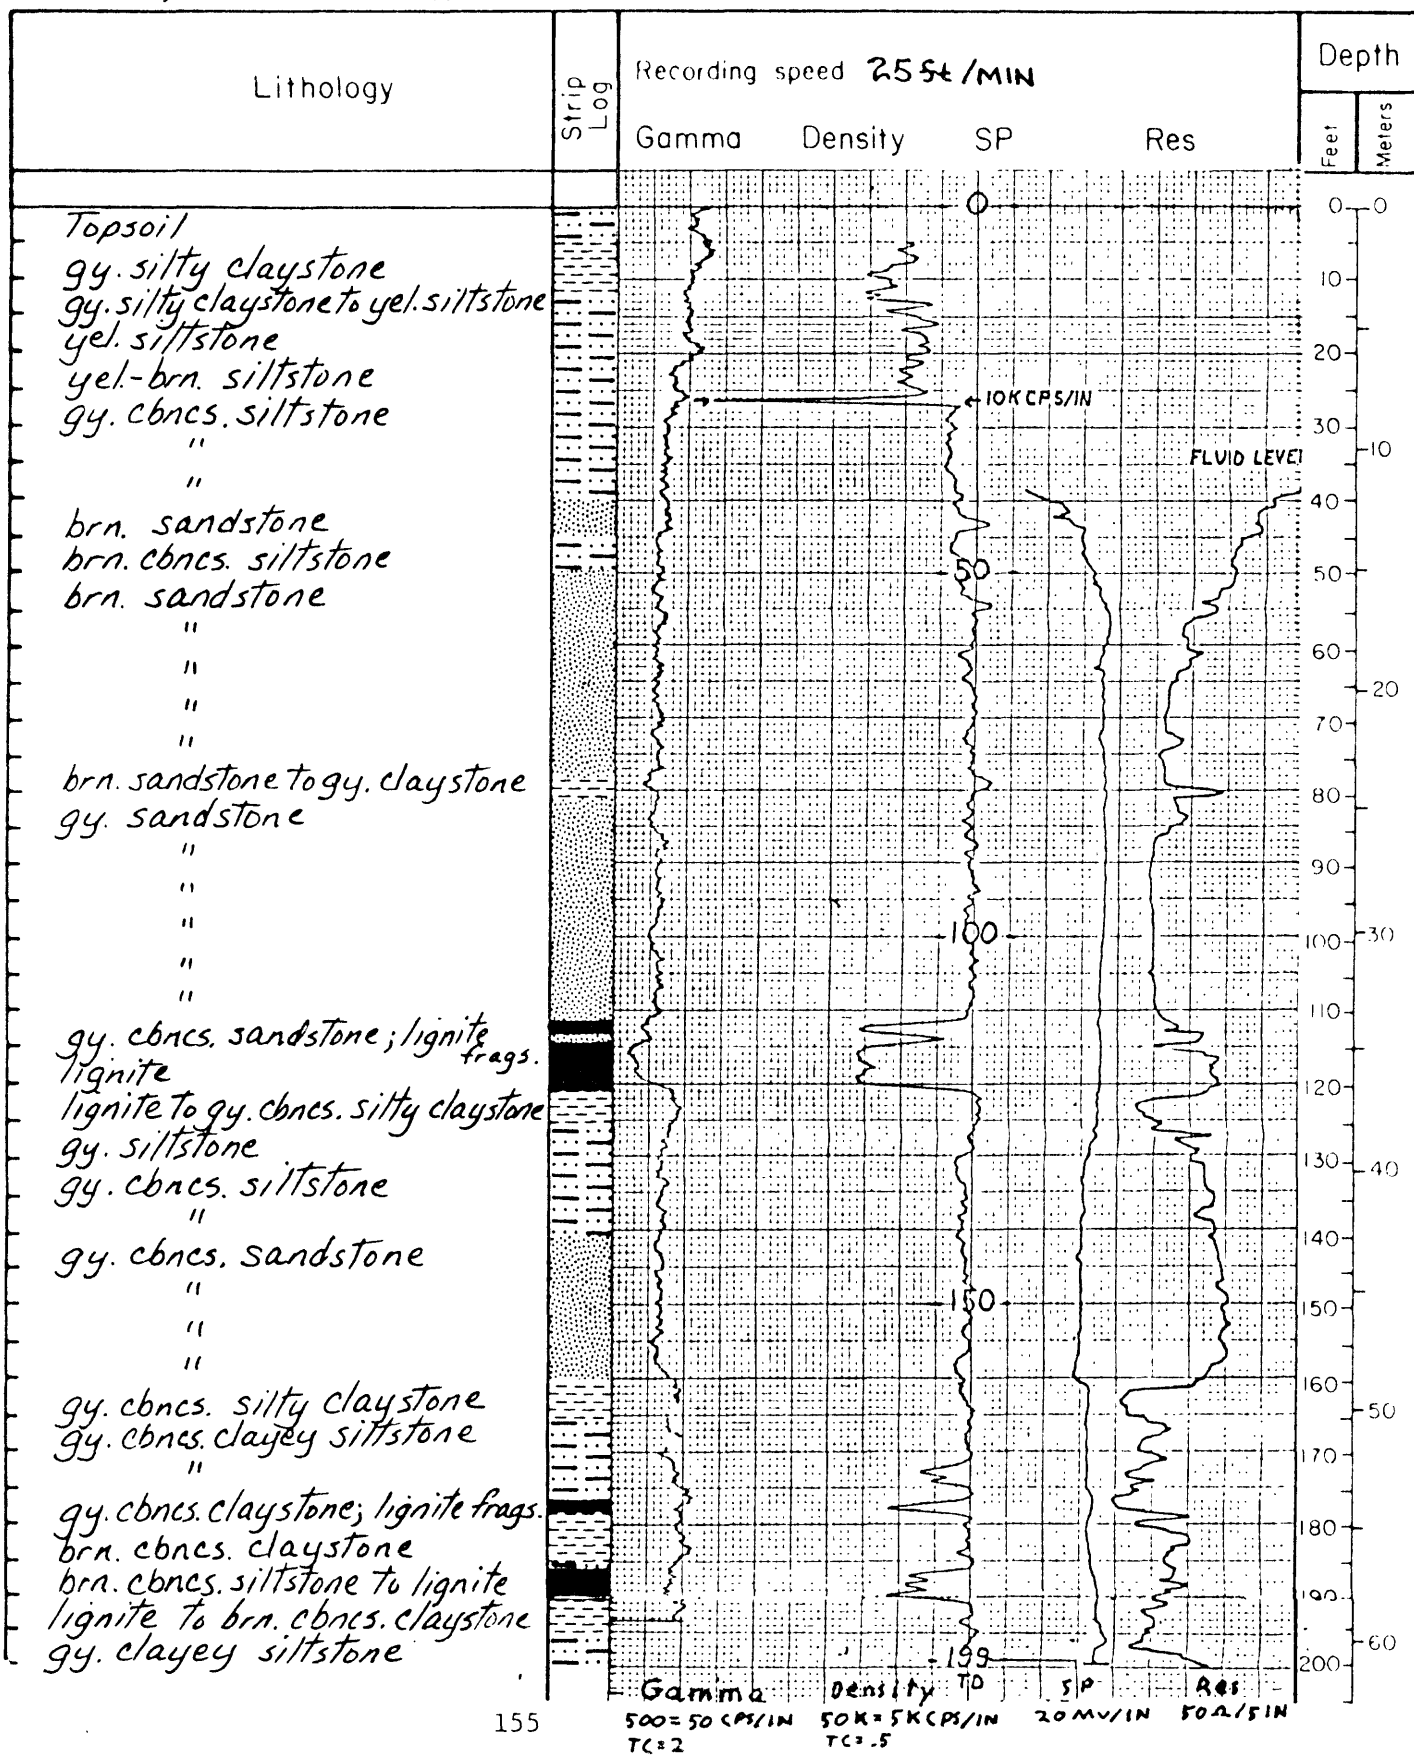 Lithology
Strip Log
Recording speed 25 ft/MIN
Gamma Density SP Res
Depth
Feet
Meters
Topsoil
gy. silty claystone
gy. silty claystone to yel. siltstone
yel. siltstone
yel.-brn. siltstone
gy. cbncs. siltstone
"
"
brn. sandstone
brn. cbncs. siltstone
brn. sandstone
"
"
"
"
brn. sandstone to gy. claystone
gy. sandstone
"
"
"
"
"
gy. cbncs. sandstone; lignite frags.
lignite
lignite to gy. cbncs. silty claystone
gy. siltstone
gy. cbncs. siltstone
"
gy. cbncs. sandstone
"
"
"
gy. cbncs. silty claystone
gy. cbncs. clayey siltstone
"
gy. cbncs. claystone; lignite frags.
brn. cbncs. claystone
brn. cbncs. siltstone to lignite
lignite to brn. cbncs. claystone
gy. clayey siltstone
0
10K CPS/IN
FLUID LEVEL
50
100
150
199
TD
0
10
20
30
40
50
60
70
80
90
100
110
120
130
140
150
160
170
180
190
200
0
10
20
30
40
50
60
Gamma Density SP Res
500=50 CPS/IN 50K=5K CPS/IN 20 MV/IN 50Ω/5IN
TC=2 TC=.5
155